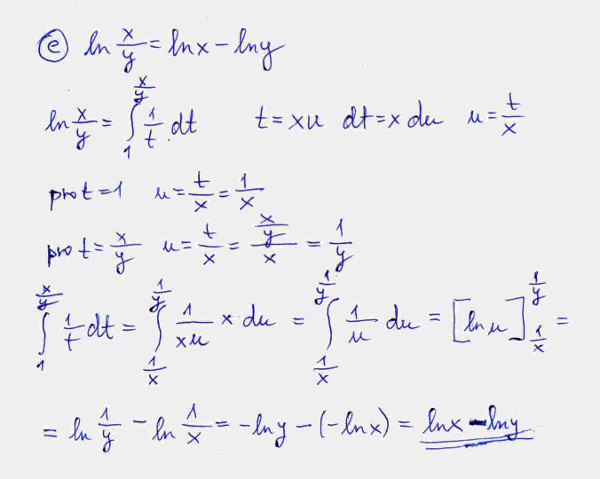 ⓔ ln x/y = lnx - lny
ln x/y = ∫₁^(x/y) 1/t dt   t = xu   dt = x du   u = t/x
pro t=1   u = t/x = 1/x
pro t = x/y   u = t/x = (x/y)/x = 1/y
∫₁^(x/y) 1/t dt = ∫_(1/x)^(1/y) 1/(xu) x du = ∫_(1/x)^(1/y) 1/u du = [ln u]_(1/x)^(1/y) =
= ln 1/y - ln 1/x = -lny - (-lnx) = lnx - lny